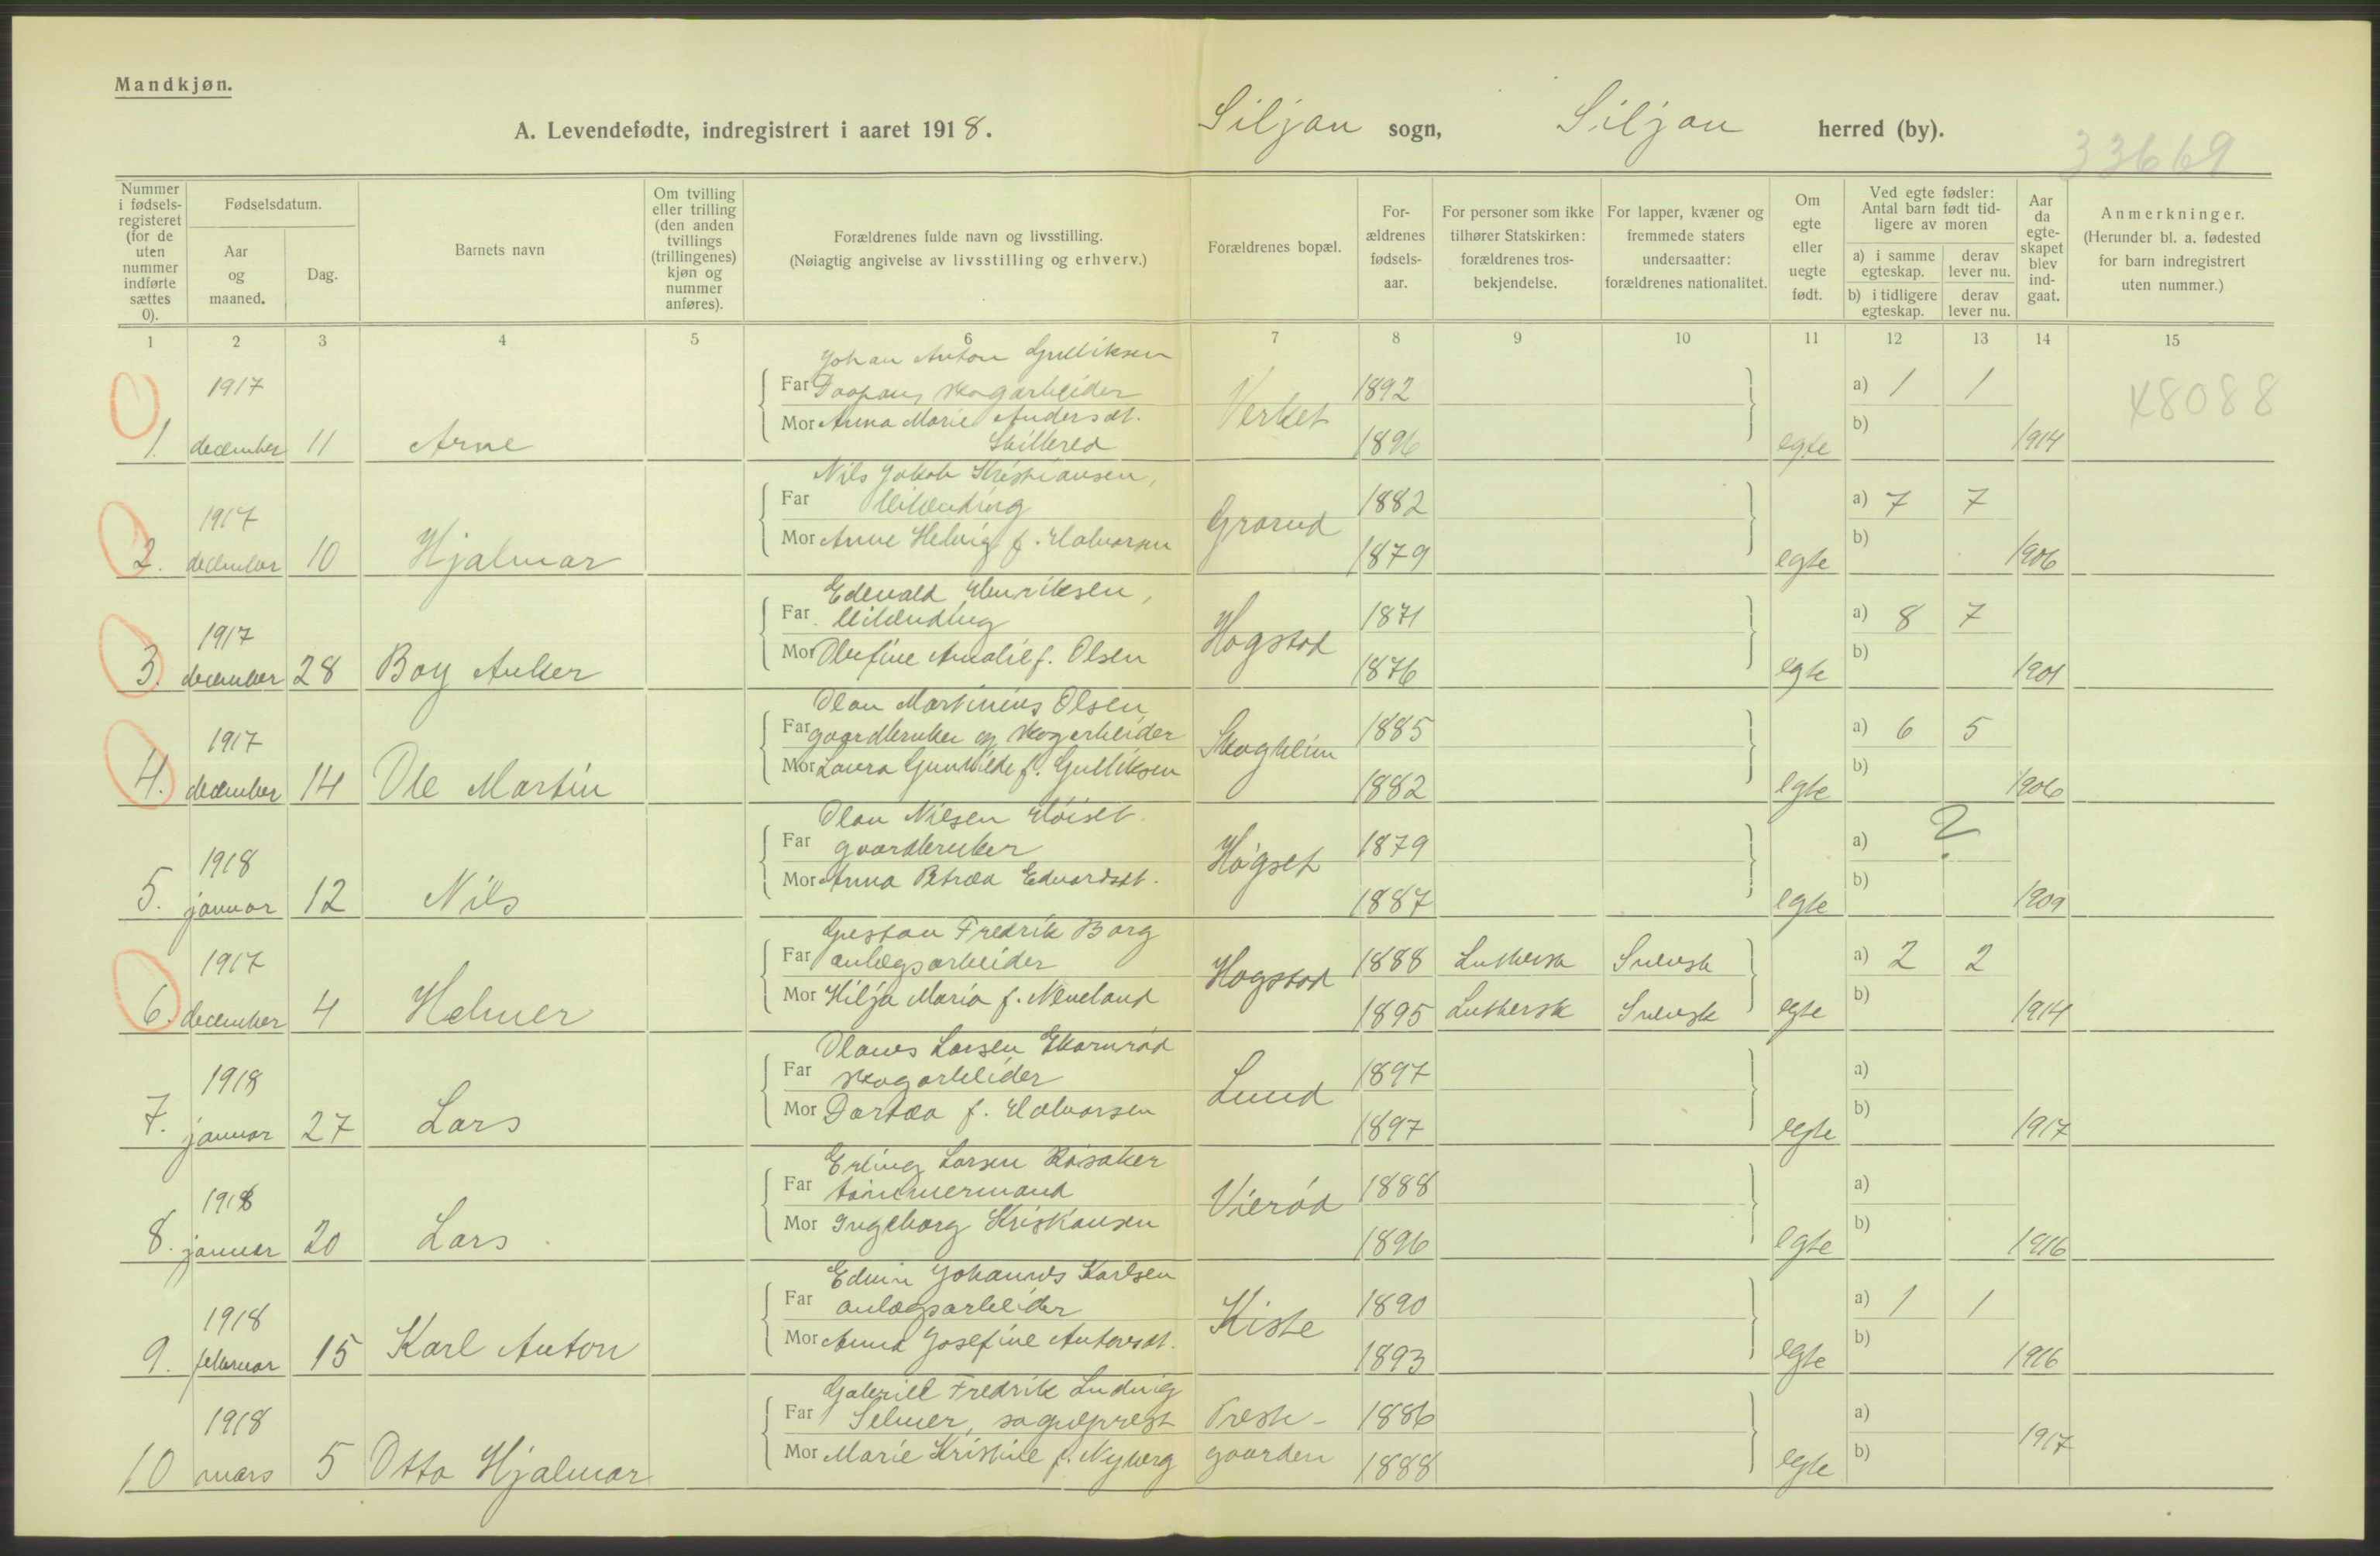 Mandkjøn.
A. Levendefødte, indregistrert i aaret 1918. Siljan sogn, Siljan herred (by).
33669
Nummer i fødsels-registeret (for de uten nummer indførte sættes 0).
Fødselsdatum.
Aar og maaned.
Dag.
Barnets navn
Om tvilling eller trilling (den anden tvillings (trillingenes) kjøn og nummer anføres).
Forældrenes fulde navn og livsstilling.
(Nøiagtig angivelse av livsstilling og erhverv.)
Forældrenes bopæl.
For-ældrenes fødsels-aar.
For personer som ikke tilhører Statskirken: forældrenes tros-bekjendelse.
For lapper, kvæner og fremmede staters undersaatter: forældrenes nationalitet.
Om egte eller uegte født.
Ved egte fødsler: Antal barn født tid-ligere av moren
a) i samme egteskap. derav lever nu.
b) i tidligere egteskap. derav lever nu.
Aar da egte-skapet blev ind-gaat.
Anmerkninger.
(Herunder bl. a. fødested for barn indregistrert uten nummer.)
1 2 3 4 5 6 7 8 9 10 11 12 13 14 15
Johan Anton Gulliksen
1917 Far skogarbeider 1892 a) 1 1 48088
Mor Anna Marie Andersdt. Verket b)
1. december 11 Arne 1896 egte 1914
Nils Jakob Kristiansen,
1917 Far leilending 1882 a) 7 7
Mor Anne Helvig f. Halvorsen Grorud b)
2. december 10 Hjalmar 1879 egte 1906
Edevald Henriksen,
1917 Far leilending 1871 a) 8 7
Mor Olefine Amalie f. Olsen Hogstad b)
3. december 28 Boy Anker 1876 egte 1901
Olav Martinius Olsen
1917 Far gaardbruker og skogarbeider 1885 a) 6 5
Mor Laura Gunhilde f. Gulliksen Skogheim b)
4. december 14 Ole Martin 1882 egte 1906
Olav Nilsen Høiset
1918 Far gaardbruker 1879 a) ?
Mor Anna Petrea Edvardsdt. Høgset b)
5. januar 12 Nils 1887 egte 1909
Gustav Fredrik Borg
1917 Far anlægsarbeider 1888 Luthersk Svensk a) 2 2
Mor Hilja Maria f. Neveland Hogstad b)
6. december 4 Helmer 1895 Luthersk Svensk egte 1914
Olaves Larsen Ekornrød
1918 Far skogarbeider 1897 a)
Mor Dortea f. Halvorsen Lund b)
7. januar 27 Lars 1897 egte 1917
Erling Larsen Råsaker
1918 Far tømmermand 1888 a)
Mor Ingeborg Kristiansen Vierød b)
8. januar 20 Lars 1896 egte 1916
Edvin Johannes Karlsen
1918 Far anlægsarbeider 1890 a) 1 1
Mor Anna Josefine Antonsdt. Kiste b)
9. februar 15 Karl Anton 1893 egte 1916
Gabriel Fredrik Ludvig
1918 Far Selmer, sogneprest Preste- 1886 a)
Mor Marie Kristine f. Nyberg gaarden b) 1917
10 mars 5 Otto Hjalmar 1888 egte